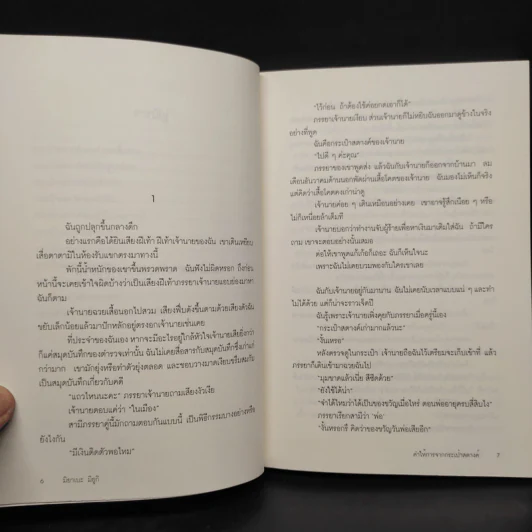 1
ฉันถูกปลุกขึ้นกลางดึก
อย่างแรกคือได้ยินเสียงฝีเท้า ฝีเท้าเจ้านายของฉัน เขาเดินเหยียบ
เสื่อตาตามิในห้องรับแขกตรงมาทางนี้
พักนี้น้ำหนักของเขาขึ้นพรวดพราด ฉันฟังไม่ผิดหรอก ถึงก่อน
หน้านี้จะเคยเข้าใจผิดบ้างว่าเป็นฝีเท้าภรรยาเจ้านายแอบย่องมาหา
ฉันก็ตาม
เจ้านายฉวยเสื้อนอกไปสวม เสียงฟึ่บดังขึ้นตามด้วยเสียงตัวฉัน
ขยับเล็กน้อยแล้วมาปักหลักอยู่ตรงอกเจ้านายเช่นเคย
ที่ประจำของฉันเอง หากจะมีอะไรอยู่ใกล้หัวใจเจ้านายเสียยิ่งกว่า
ก็แค่สมุดบันทึกของตำรวจเท่านั้น ฉันไม่เคยสื่อสารกับสมุดบันทึกซึ่งเก่าแก่
กว่ามาก เขามักยุ่งหรือทำตัวยุ่งตลอด และชอบวางมาดเงียบขรึมสมกับ
เป็นสมุดบันทึกเกี่ยวกับคดี
"แถวไหนนะคะ" ภรรยาเจ้านายถามเสียงงัวเงีย
เจ้านายตอบแค่ว่า "ในเมือง"
สามีภรรยาคู่นี้มักถามตอบกันแบบนี้ เป็นพิธีกรรมบางอย่างหรือ
ยังไงกัน
"มีเงินติดตัวพอไหม"
6 มิยาเบะ มิยูกิ
"ไว้ก่อน ถ้าต้องใช้ค่อยกดเอาก็ได้"
ภรรยาเจ้านายเงียบ ส่วนเจ้านายก็ไม่หยิบฉันออกมาดูข้างในจริง
อย่างที่พูด
ฉันคือกระเป๋าสตางค์ของเจ้านาย
"ไปดี ๆ ค่ะคุณ"
ภรรยาของเขาพูดส่ง แล้วฉันกับเจ้านายก็ออกจากบ้านมา ลม
เดือนธันวาคมด้านนอกพัดผ่านเสื้อโคตของเจ้านาย ฉันมองไม่เห็นก็จริง
แต่คิดว่าเสื้อโคตคงเก่าน่าดู
เจ้านายค่อย ๆ เดินเหมือนอย่างเคย เขาอาจรู้สึกเนือย ๆ หรือ
ไม่ก็เหนื่อยล้าเต็มที
เจ้านายบอกว่าทำงานจับผู้ร้ายเพื่อหาเงินมาเติมใส่ฉัน ถ้ามีใคร
ถาม เขาจะตอบอย่างนั้นเสมอ
ต่อให้เขาพูดแก้เก้อก็เถอะ ฉันก็เห็นใจนะ
เพราะฉันไม่เคยอบรมพองกับใครเขาเลย
ฉันกับเจ้านายอยู่กันมานาน ฉันไม่เคยนับเวลาแบบแน่ ๆ และทำ
ไม่ได้ด้วย แต่ก็น่าจะราวเจ็ดปี
ฉันรู้เพราะเจ้านายเพิ่งคุยกับภรรยาเมื่อครู่นี้เอง
"กระเป๋าสตางค์เก่ามากแล้วนะ"
"งั้นเหรอ"
หลังตรวจดูในกระเป๋า เจ้านายถือฉันไว้เตรียมจะเก็บเข้าที่ แล้ว
ภรรยาก็เดินเข้ามาฉวยฉันไป
"มุมขาดแล้วเนี่ย สีซีดด้วย"
"ยังใช้ได้น่า"
"จำได้ไหมว่าได้เป็นของขวัญเมื่อไหร่ ตอนพ่ออายุครบสี่สิบไง"
ภรรยาเรียกสามีว่า 'พ่อ'
"งั้นหรอกรึ คิดว่าของขวัญวันพ่อเสียอีก"
คำให้การจากกระเป๋าสตางค์ 7